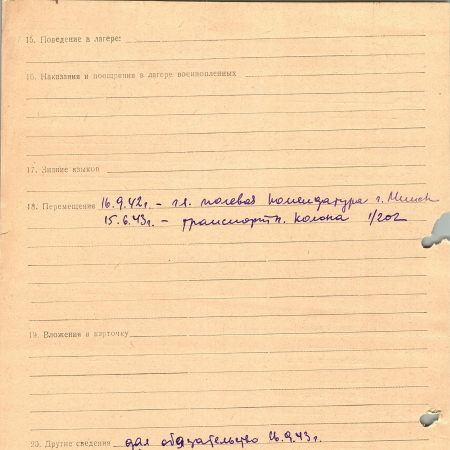 15. Поведение в лагере:
16. Наказания и поощрения в лагере военнопленных
17. Знание языков
18. Перемещения 16.9.42г. – гл. полевая комендатура г. Минск
15.6.43г. – транспортн. колона 1/202
19. Вложения в карточку
20. Другие сведения дал обязательство 26.9.43г.